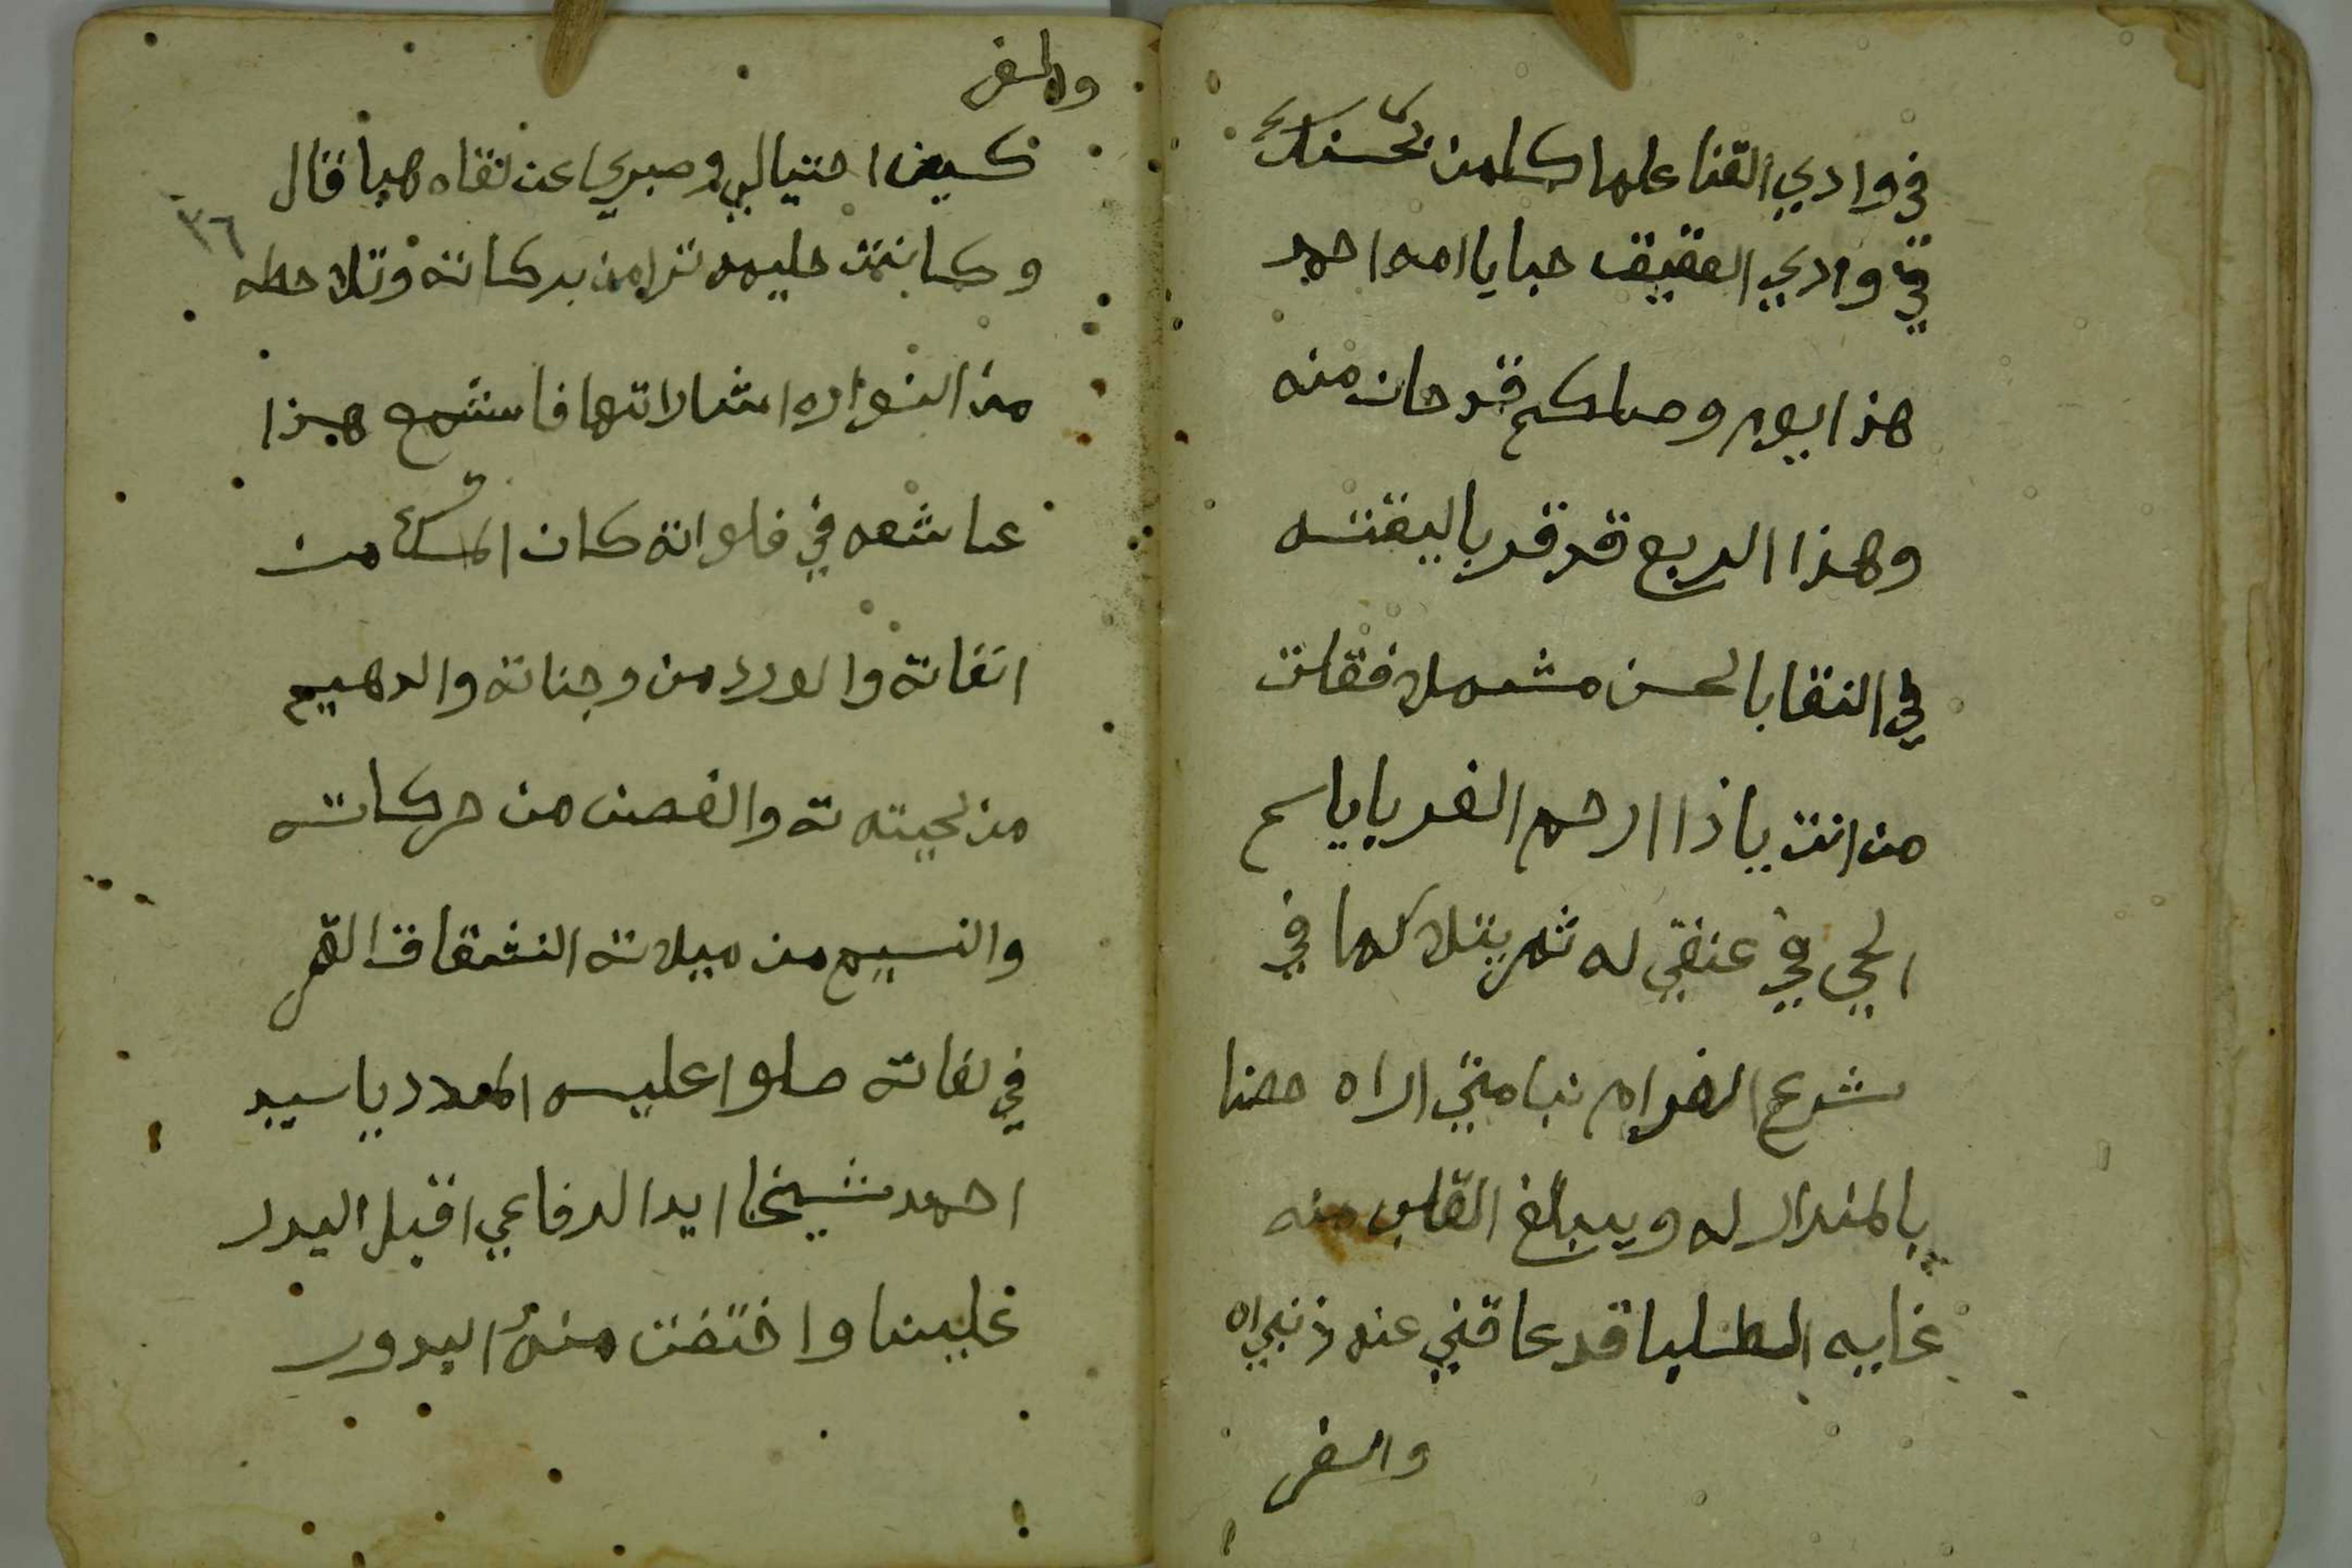 في وادي النقا علما كلمن بحسنك
في وادي العقيق حبايا امه احمد
هذا يوم وصلكم قد حان منه
وهذا الربع قد قد باليقته
في النقا بالحسن مشمولا فقلت
من انت يا ذا ارحم الغربا ياسم
الحي في عنقي له ثم يتلا كما في
شرع الغرام نبا متي اراه حضنا
بالمندار له ويبلغ القلب منه
غايه الطلبا قد عاقني عنه ذنبي اه
والسفر
والسفر
كيف احتيالي وصبري عن لقاه هبا فقال
٣٦
وكانت حليمه ترا من بركاته وتلاحظه
من النوار اشاراتها فاستمع هذا
عاشعه في فلواته كان المسك من
انفاته والورد من وجناته والدهيم
من لحيته ته والغصن من حركاته
والنسيم من ميلاته النشقاق القمر
في لفاته صلوا عليه المدد يا سيد
احمد شيخا ايد الرفاعي اقبل البدر
علينا واختفت منه البدور